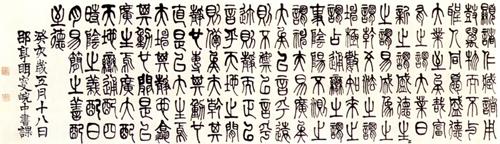 顯諸仁藏諸用
鼓萬物而不與
聖人同憂盛德
大業至矣哉富
有之謂大業日
新之謂盛德生
生之謂易成象
之謂乾效法之
謂坤極數知來
之謂占通變之
謂事陰陽不測
之謂神夫易廣
矣大矣以言乎遠
則不禦以言乎邇
則靜而正以言
乎天地之間
則備矣夫乾
其靜也專其動也
直是以大生焉
夫坤其靜也翕
其動也闢是以
廣生焉廣大配
天地變通配四
時陰陽之義配日
月易簡之善配
至德
癸亥歲五月十八日
郘亭眲叟皖中書課